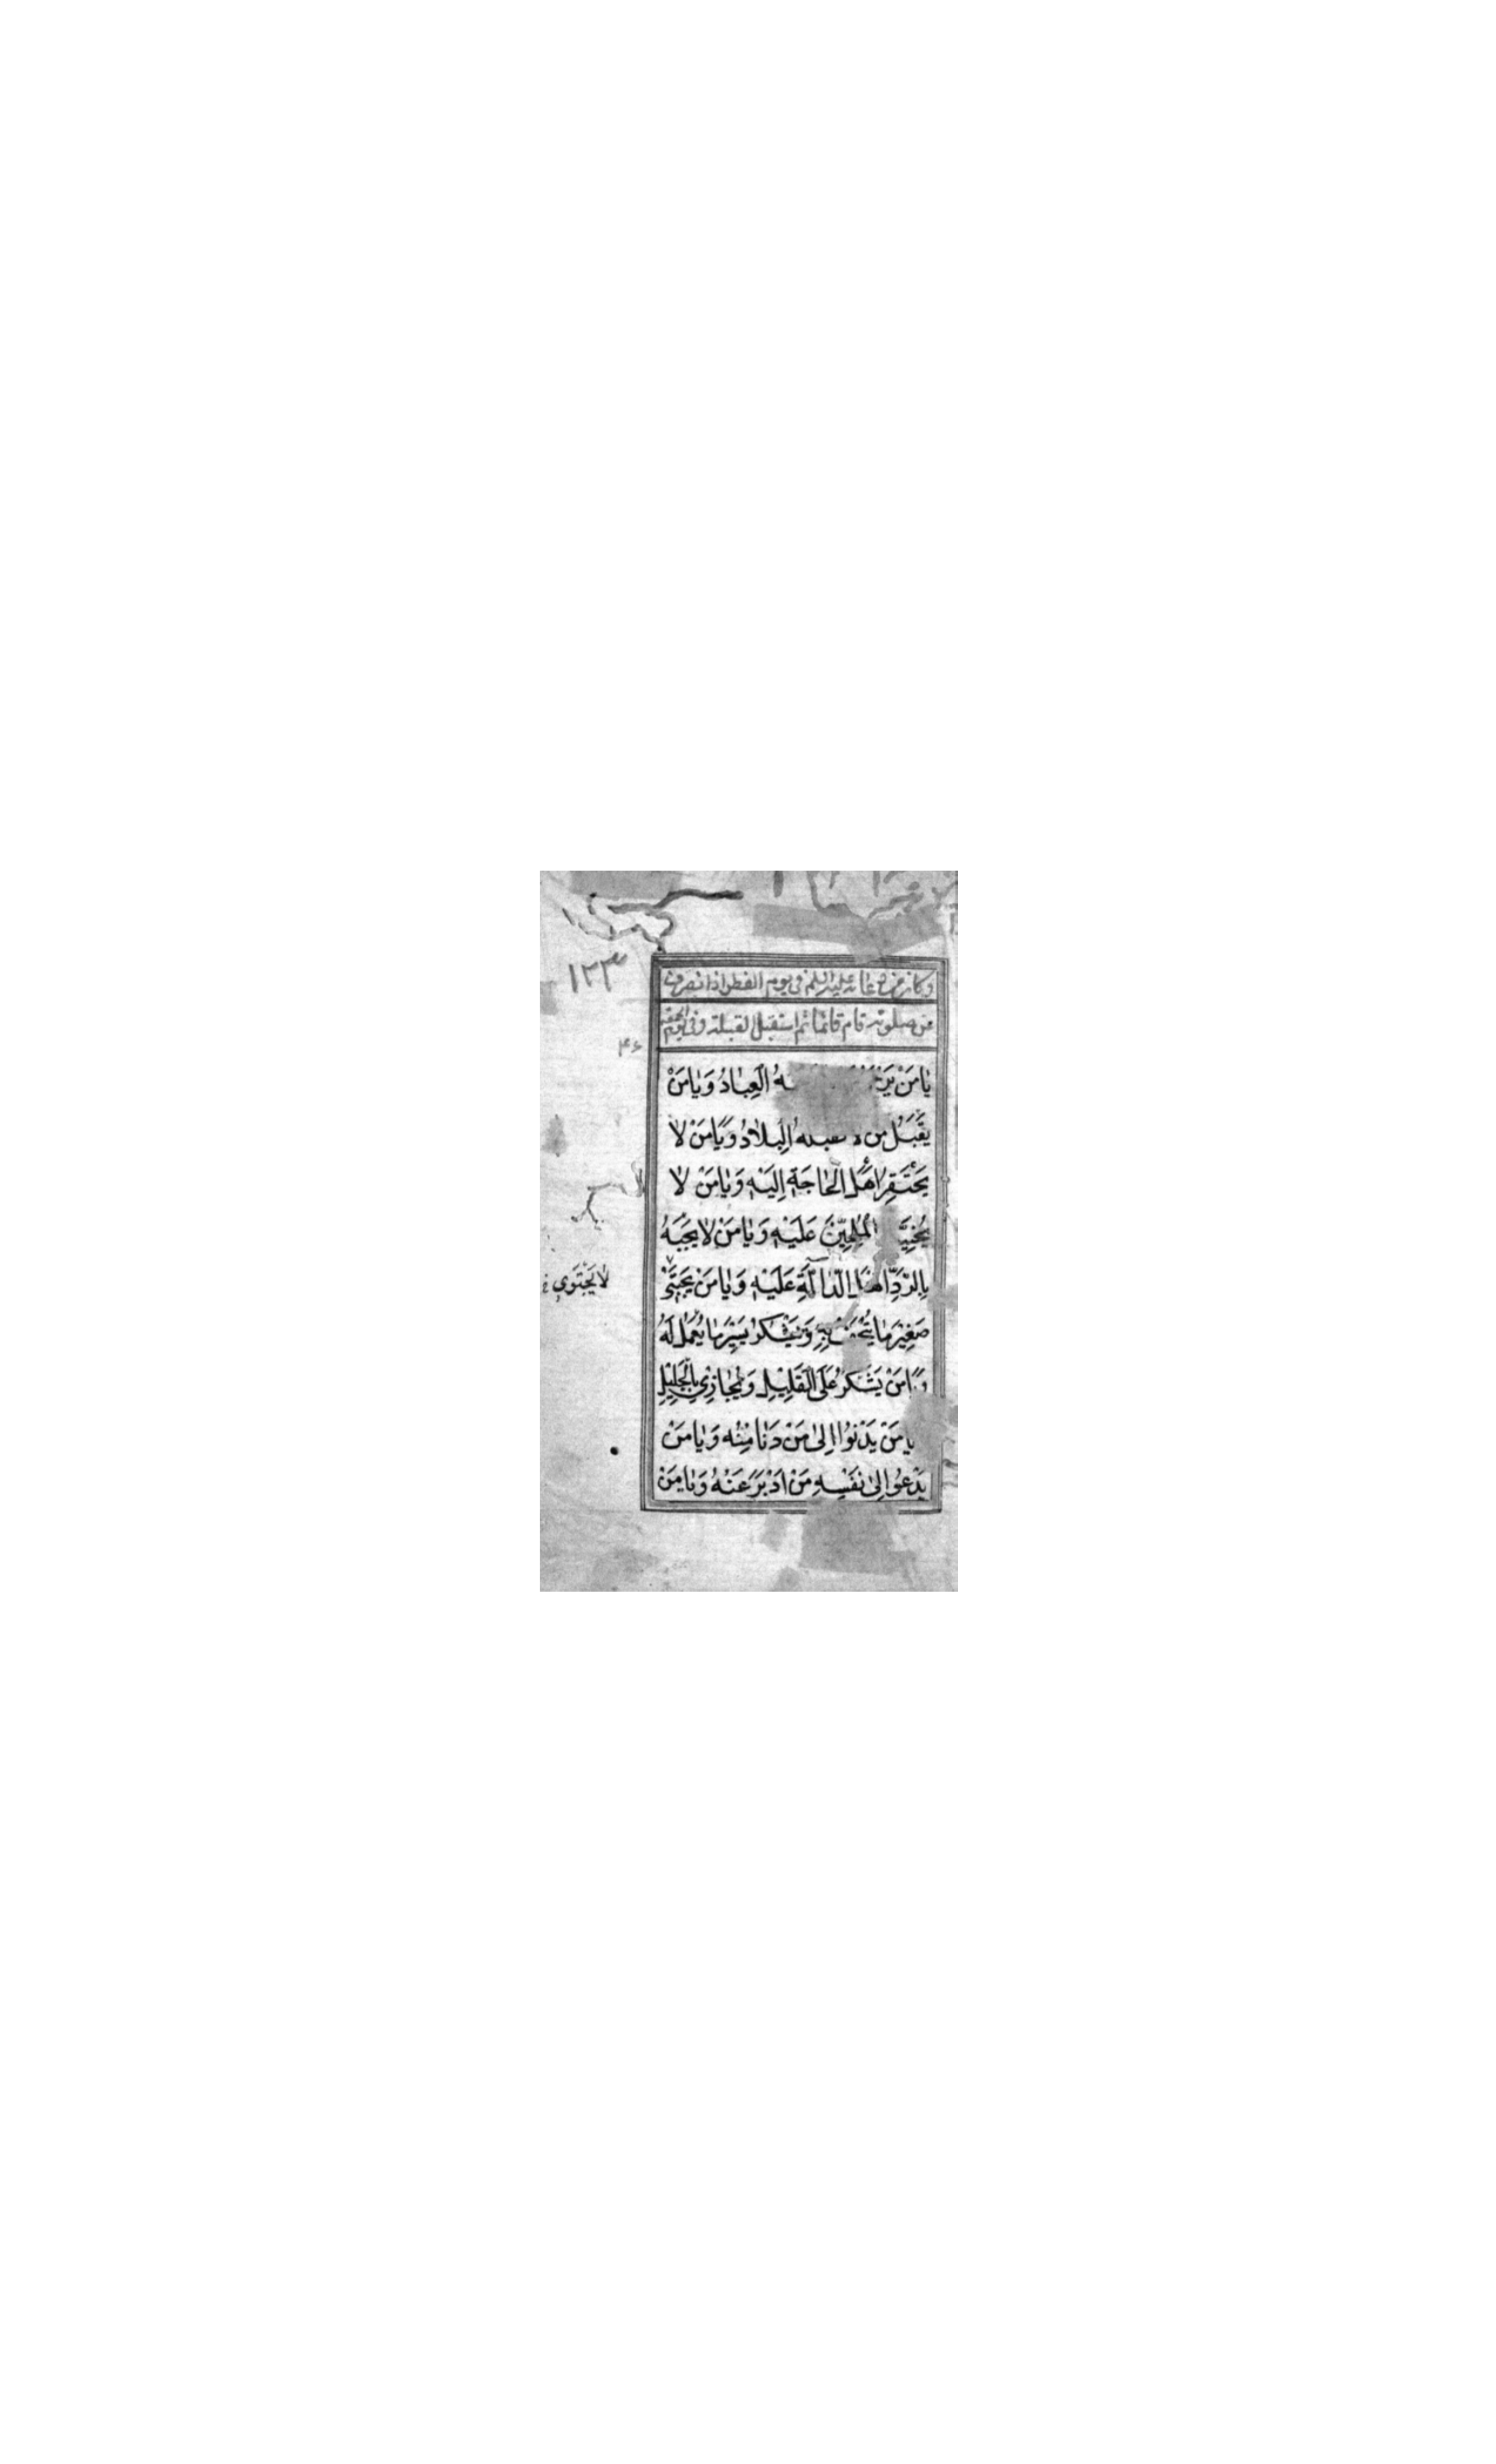 ١٢٣
وكان من دعائه عليه السلم في يوم الفطر اذا انصرف
من صلوته قام قائما ثم استقبل القبلة وفي يوم الجمعة
۴۶
يٰا مَنْ الْعِبٰادُ وَيٰا مَنْ
يَقْبَلُ مَنْ لا تقبله الْبِلٰادُ وَيٰا مَنْ لٰا
يَحْتَقِرُ اَهْلَ الْحٰاجَةِ اِلَيْهِ وَيٰا مَنْ لٰا
يُخَيِّبُ الْمُلِحّيْنَ عَلَيْهِ وَيٰا مَنْ لٰا يَجْبَهُ
بِالرَّدِّ اَهْلَ الدّٰالَّةِ عَلَيْهِ وَيٰا مَنْ يَجْتَبِيْ
لا يَجْتَوي
صَغِيْرَ مٰا يُتْحَفُ بِهِ وَيَشْكُرُ يَسِيْرَ مٰا يُعْمَلُ لَهُ
وَيٰا مَنْ يَشْكُرُ عَلَى الْقَلِيْلِ وَيُجٰازِيْ بِالْجَلِيْلِ
يٰا مَنْ يَدْنُوا اِلىٰ مَنْ دَنٰا مِنْهُ وَيٰا مَنْ
يَدْعُوا اِلىٰ نَفْسِهِ مَنْ اَدْبَرَ عَنْهُ وَيٰا مَنْ